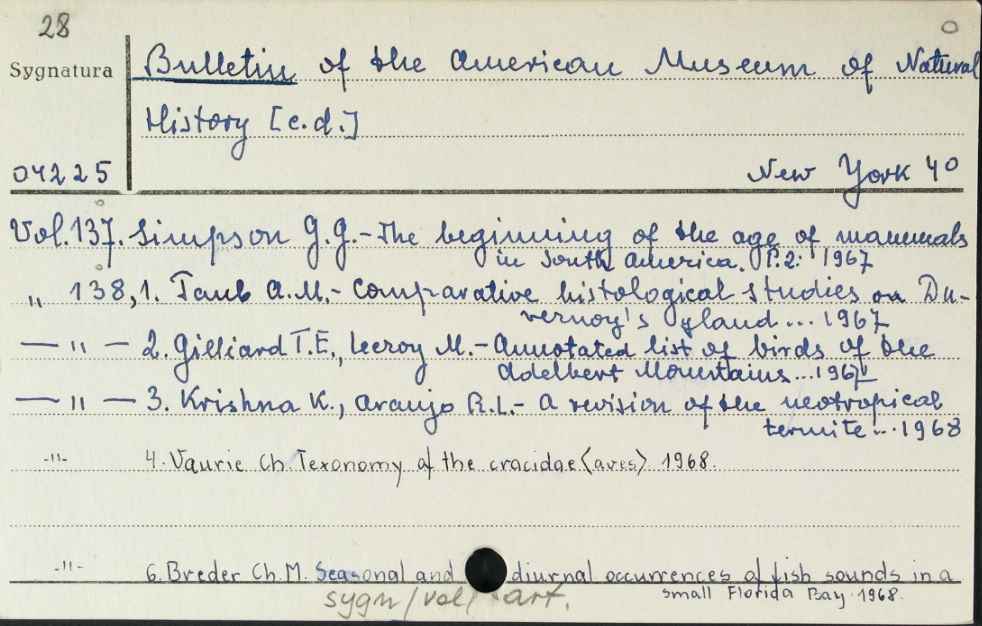 28
Sygnatura
Bulletin of the American Museum of Natural
History [c.d.]
04225
New York 40
Vol. 137. Simpson G.G.- The beginning of the age of mammals
in South America. P.2. 1967
„ 138,1. Taub A.M.- Comparative histological studies on Du-
vernoy's gland... 1967
— " — 2. Gilliard T.E., Lecroy M.- Annotated list of birds of the
Adelbert Mountains...1967
— " — 3. Krishna K., Araujo R.L.- A revision of the neotropical
termite... 1968
-"- 4. Vaurie Ch. Texonomy of the cracidae (aves) 1968.
-"- 6. Breder Ch. M. Seasonal and diurnal occurrences of fish sounds in a
small Florida Bay 1968.
sygn/vol/ art.